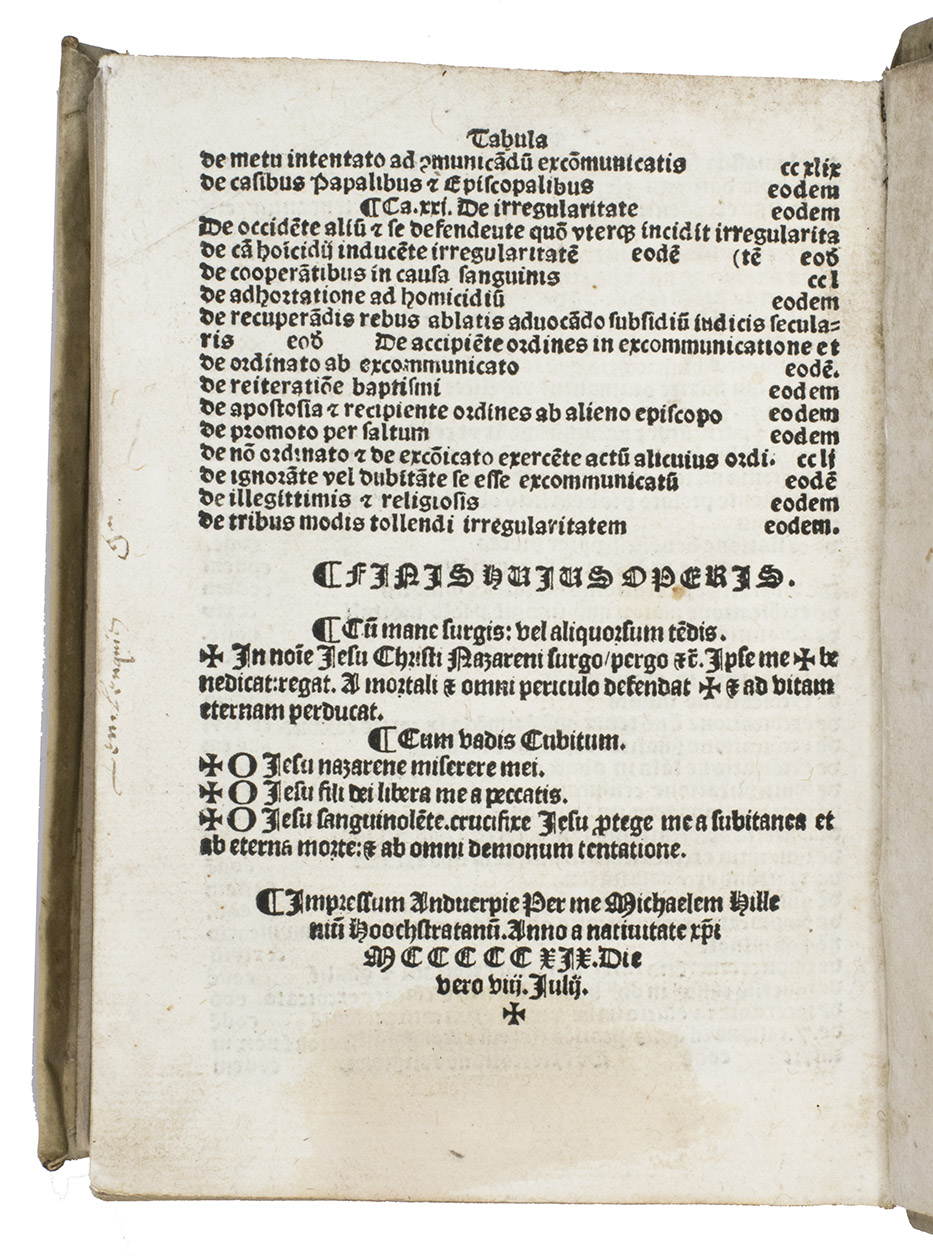 Tabula
de metu intentato ad ꝯmunicādū excōmunicatis cc xlix
de casibus Papalibus ⁊ Episcopalibus eodem
¶Ca.xxj. De irregularitate eodem
De occidēte aliū ⁊ se defendeute quō vterqꝫ incidit irregularita
de cā hoīcidij inducēte irregularitatē eodē (tē eod̄
de cooperātibus in causa sanguinis cc l
de adhortatione ad homicidiū eodem
de recuperādis rebus ablatis aduocādo subsidiū iudicis secula=
ris eod̄ De accipiēte ordines in excommunicatione et
de ordinato ab excommunicato eodē.
de reiteratiōe baptismi eodem
de apostosia ⁊ recipiente ordines ab alieno episcopo eodem
de promoto per saltum eodem
de nō ordinato ⁊ de excōicato exercēte actū alicuius ordi. cc lj
de ignorāte vel dubitāte se esse excommunicatū eodē
de illegittimis ⁊ religiosis eodem
de tribus modis tollendi irregularitatem eodem.
¶FINIS HUIUS OPERIS.
¶Cū mane surgis: vel aliquorsum tēdis.
✠ In noīe Jesu Christi Nazareni surgo/pergo ⁊c̄. Ipse me ✠ be
nedicat:regat. A mortali ⁊ omni periculo defendat ✠ ⁊ ad vitam
eternam perducat.
¶Cum vadis Cubitum.
✠ O Jesu nazarene miserere mei.
✠ O Jesu fili dei libera me a peccatis.
✠ O Jesu sanguinolēte.crucifixe Jesu ꝓtege me a subitanea et
ab eterna morte:⁊ ab omni demonum tentatione.
¶Impressum Anduerpie Per me Michaelem Hille
niū Hoochstratanū.Anno a natiuitate xp̄i
M C C C C C XIX.Die
vero viij. Julij.
✠